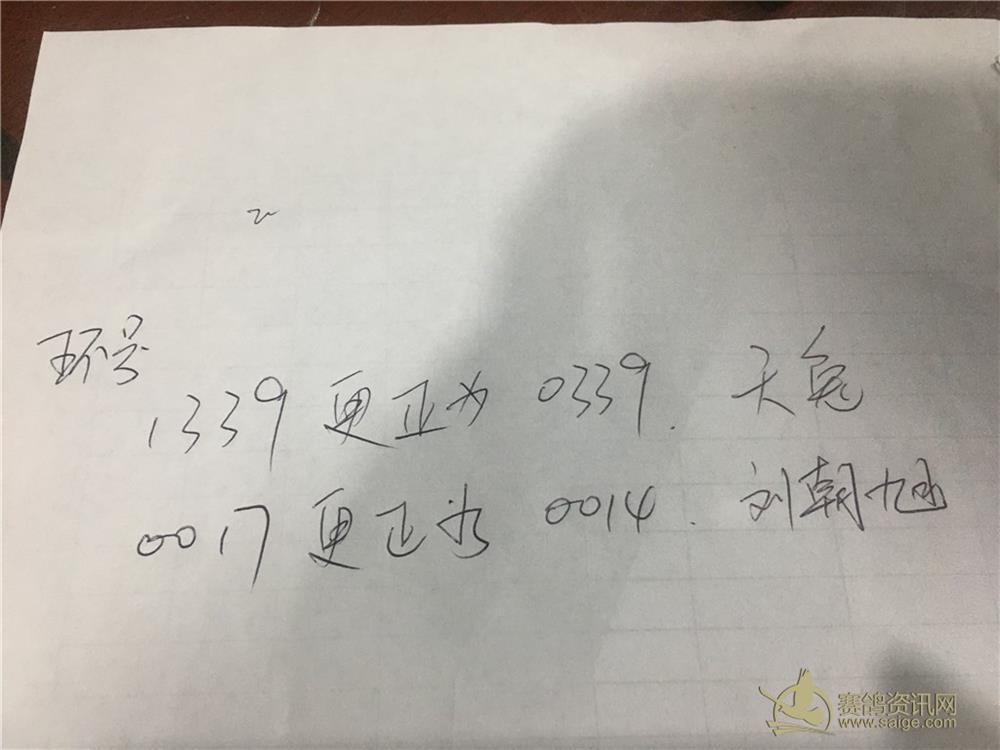 环号
1339 更正为 0339. 天兔
0017 更正为 0014. 刘朝旭
赛鸽资讯网
www.saige.com